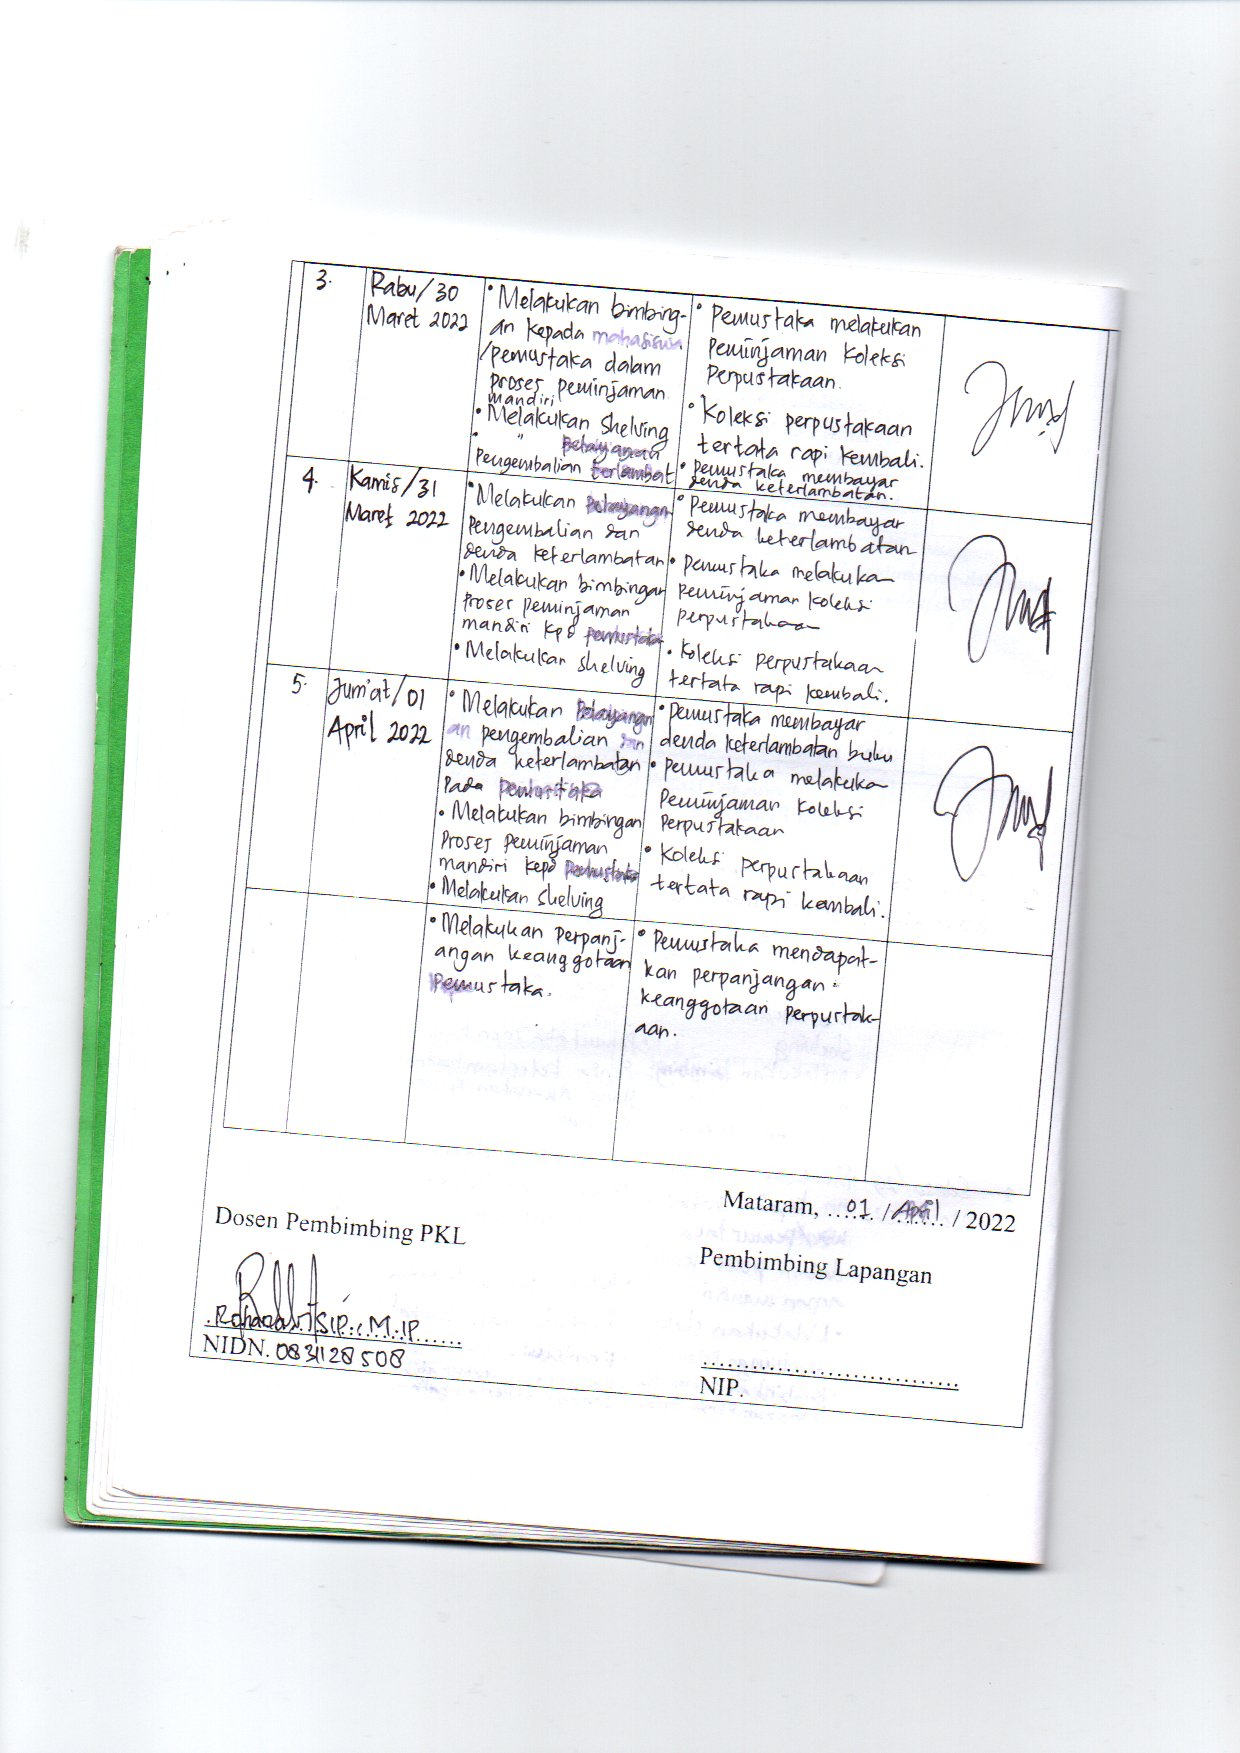 3.
Rabu/30
Maret 2022
• Melakukan bimbing-
an kepada mahasiswa
/pemustaka dalam
proses peminjaman
mandiri
• Melakukan Shelving
• " Pelayanan
Pengembalian terlambat
• Pemustaka melakukan
Peminjaman Koleksi
Perpustakaan.
• Koleksi perpustakaan
tertata rapi kembali.
• Pemustaka membayar
denda keterlambatan.
4.
Kamis/31
Maret 2022
• Melakukan
Pengembalian dan
denda keterlambatan
• Melakukan bimbingan
Proses peminjaman
mandiri kpd pemustaka
• Melakukan shelving
• Pemustaka membayar
denda keterlambatan
• Pemustaka melakukan
Peminjaman koleksi
perpustakaan
• Koleksi perpustakaan
tertata rapi kembali.
5.
Jum'at/01
April 2022
• Melakukan
an pengembalian dan
denda keterlambatan
Pada Pemustaka
• Melakukan bimbingan
Proses Peminjaman
mandiri kepd Pemustaka
• Melakukan shelving
• Pemustaka membayar
denda keterlambatan buku
• Pemustaka melakukan
Peminjaman koleksi
Perpustakaan
• Koleksi perpustakaan
tertata rapi kembali.
• Melakukan perpanj-
angan keanggotaan
pemustaka.
• Pemustaka mendapat-
kan perpanjangan
keanggotaan perpustak-
aan.
Mataram, 01 / April / 2022
Dosen Pembimbing PKL
Pembimbing Lapangan
SIP., M.IP
NIDN. 0831128508
NIP.